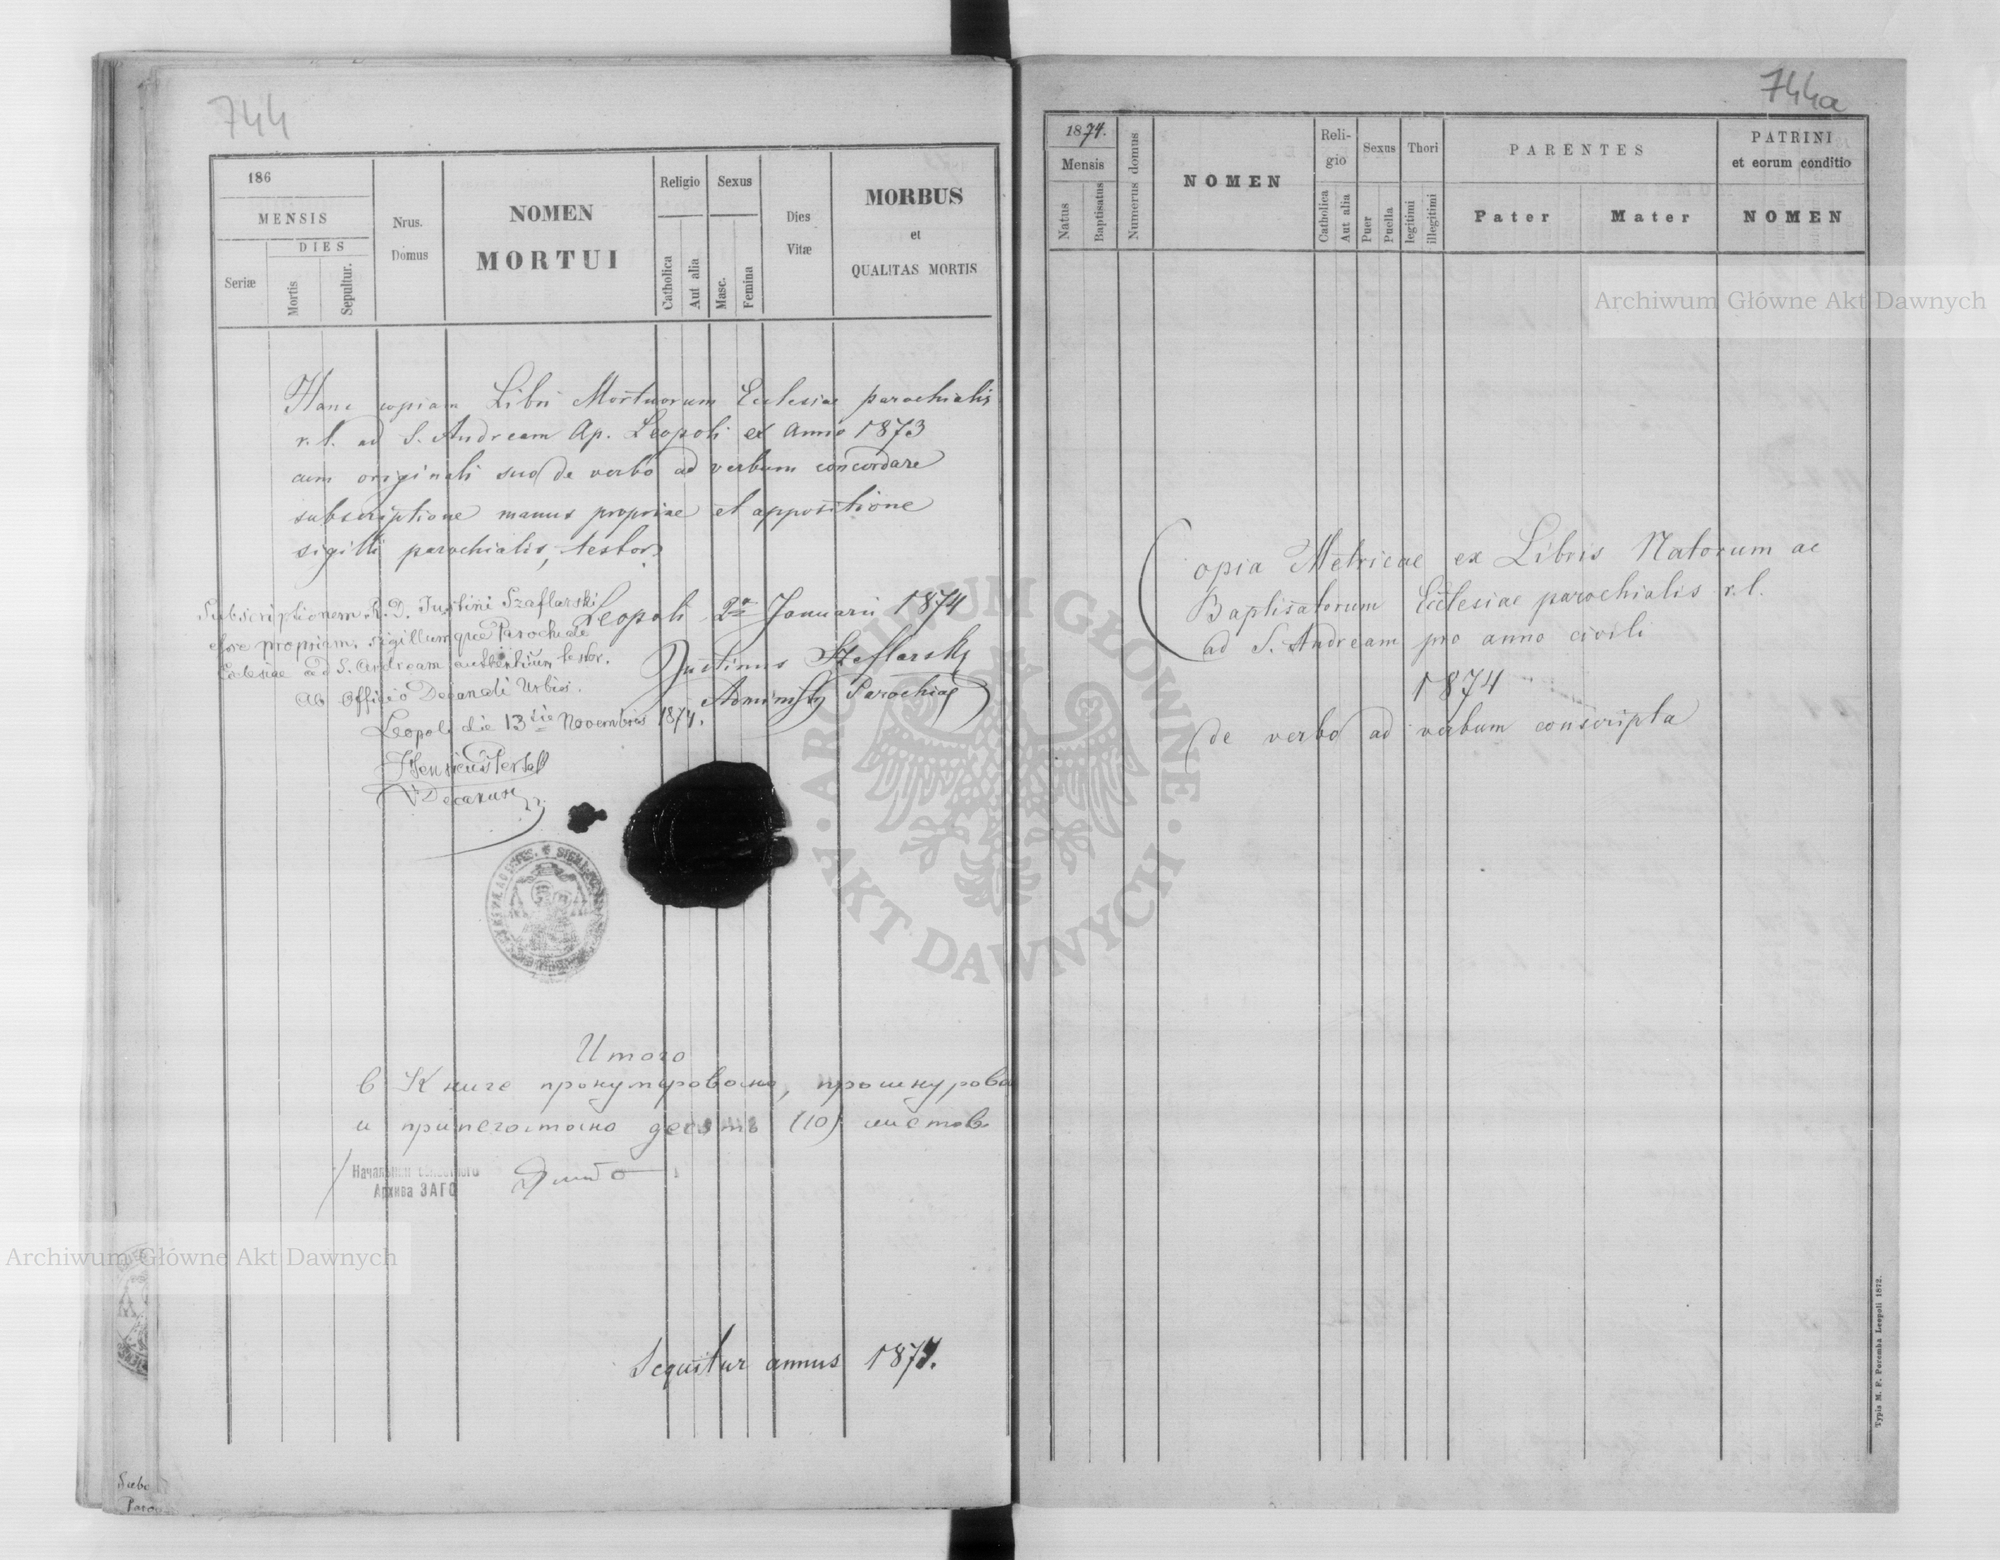 744
186
MENSIS
DIES
Seriæ
Mortis
Sepultur.
Nrus.
Domus
NOMEN
MORTUI
Religio
Catholica
Aut alia
Sexus
Masc.
Femina
Dies
Vitæ
MORBUS
et
QUALITAS MORTIS
Hanc copiam Libri Mortuorum Ecclesiae parochialis
r. l. ad S. Andream Ap. Leopoli ex Anno 1873
cum originali suo de verbo ad verbum concordare
subscriptione manus propriae et appositione
sigilli parochialis, testor.
Leopoli 2a Januarii 1874
Justinus Szaflarski
Administr Parochiae
Subscriptionem R. D. Justini Szaflarski
esse propriam, sigillumque Parochialis
Eclesiae ad S. Andream authenticum testor.
Ab Officio Decanali Urbis.
Leopoli die 13 Novembris 1874.
V Decanus
Итого
в Книге пронумеровано, прошнурова
и припечатано десять (10) листов
Архива ЗАГС
Sequitur annus 1874.
744a
1874.
Mensis
Natus
Baptisatus
Numerus domus
NOMEN
Reli-
gio
Catholica
Aut alia
Sexus
Puer
Puella
Thori
legitimi
illegitimi
PARENTES
Pater
Mater
PATRINI
et eorum conditio
NOMEN
Copia Metricae ex Libris Natorum ac
Baptisatorum Ecclesiae parochialis r. l.
ad S. Andream pro anno civili
1874
de verbo ad verbum conscripta
Typis M. F. Poremba Leopoli 1872.
Archiwum Główne Akt Dawnych
Archiwum Główne Akt Dawnych
ARCHIWUM GŁÓWNE · AKT DAWNYCH ·